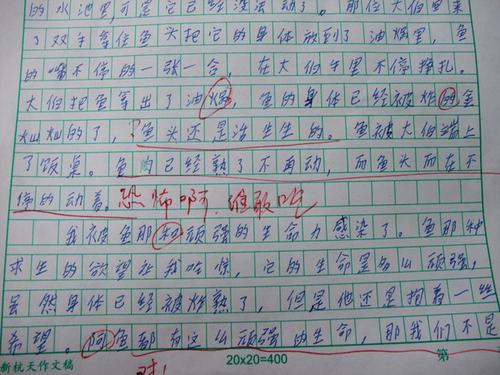 的水池里,可是它已经没法动了。那位大伯里来
了双手拿住鱼头把它的身体放到了油锅里,鱼
的嘴不停的一张一合,在大伯手里不停挣扎。
大伯把鱼拿出了油锅,鱼的身体已经被炸的金
灿灿的了,鱼头还是活生生的。鱼被大伯端上
了饭桌。鱼肉已经熟了不再动,而鱼头而在不
停的动着。恐怖啊,谁敢吃
我被鱼那和顽强的生命力感染了。鱼那种
求生的欲望让我吃惊,它的生命是多么顽强,
虽然身体已经被炸熟了,但是他还是抱着一丝
希望。阿鱼都有这么顽强的生命,那我们不是
对!
新杭天作文稿
20x20=400
第